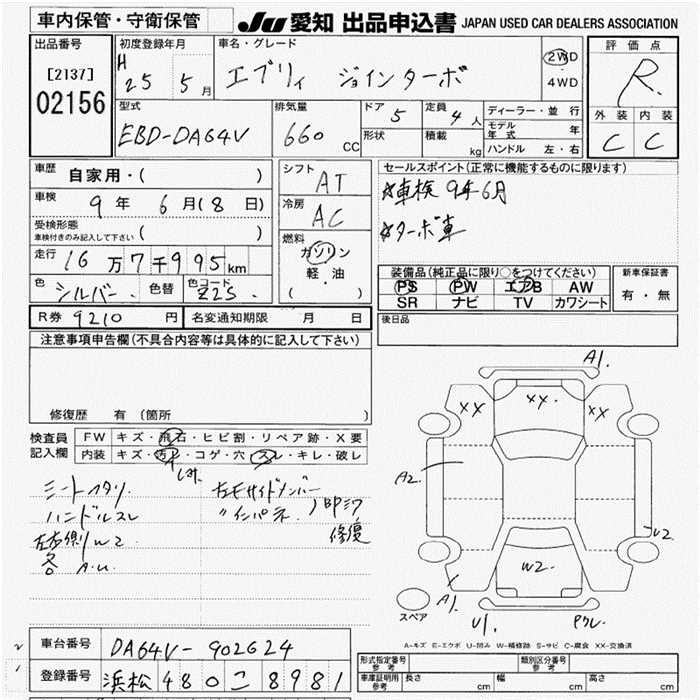 車内保管・守衛保管
JU 愛知 出品申込書 JAPAN USED CAR DEALERS ASSOCIATION
出品番号
[2137]
02156
初度登録年月
H 25 5月
車名・グレード
エブリィ ジョインターボ
2WD
4WD
評価点
R
外装 内装
C C
型式
EBD-DA64V
排気量
660 CC
ドア 5
形状
定員 4人
積載 kg
ディーラー・並行
モデル年式 年
ハンドル 左・右
車歴 自家用・( )
車検 9年 6月(8日)
受検形態
車検付きのみ記入して下さい ( )
走行 16万7千995km
色 シルバー 色替 色コード Z2S
シフト AT
冷房 AC
燃料
ガソリン
軽・油
( )
セールスポイント(正常に機能するものに限ります)
☆車検 9年6月
☆ターボ車
装備品(純正品に限り○をつけてください)
PS PW エアB AW
SR ナビ TV カワシート
新車保証書
有・無
R券 9210円 名変通知期限 月 日
後日品
注意事項申告欄(不具合内容等は具体的に記入して下さい)
修復歴 有 (箇所
検査員記入欄
FW キズ・飛石・ヒビ割・リペア跡・X要
内装 キズ・汚レ・コゲ・穴・スレ・キレ・破レ
シートヘタリ
ハンドルスレ
左右側 W2
各 A.U.
左右サイドメンバー
〃インパネ
修復
A1.
XX XX XX
A2.
U2.
W2.
A1
U1.
スペア
A-キズ E-エクボ U-凹み W-補修跡 S-サビ C-腐食 XX-交換済
車台番号 DA64V-902624
登録番号 浜松 480 こ 8981
形式指定番号 参考
類別区分番号 参考
車庫証明用 参考 長さ cm 幅 cm 高さ cm